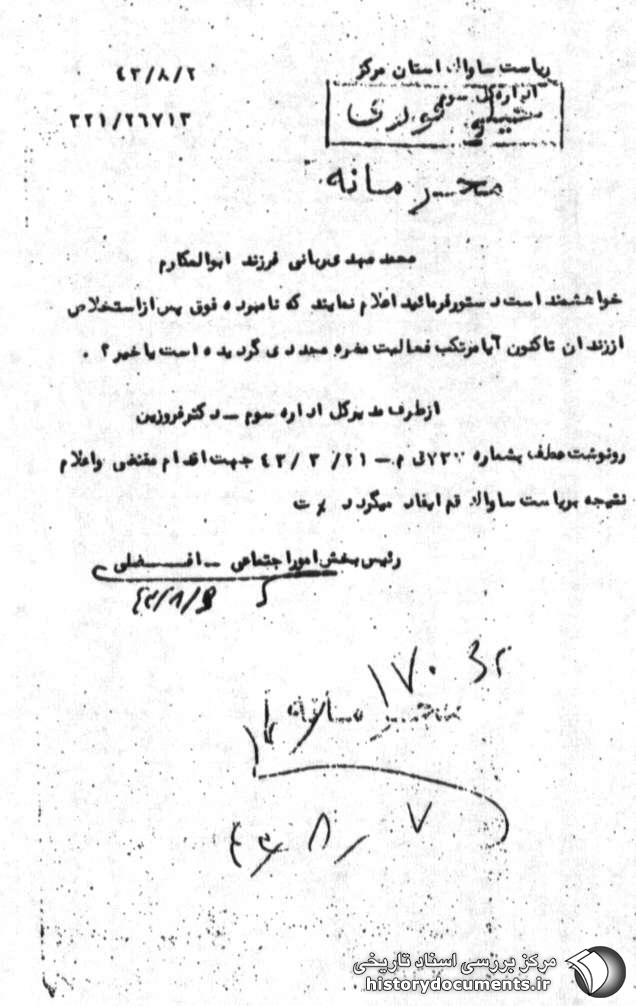 ریاست ساواک استان مرکز
۴۳/۸/۲
اداره کل سوم
۳۲۱/۲۶۷۱۳
خیلی فوری
محرمانه
محمد مهدی ربانی فرزند ابوالمکارم
خواهشمند است دستور فرمائید اعلام نمایند که نامبرده فوق پس از استخلاص
از زندان تاکنون آیا مرتکب فعالیت مضره مجددی گردیده است یا خیر ؟ .
از طرف مدیر کل اداره سوم – دکتر فروزین
رونوشت عطف بشماره ۷۲۰ ق م – ۲۱/ ۳ /۴۳ جهت اقدام مقتضی واعلام
نتیجه بریاست ساواک قم ایفاد میگردد
رئیس بخش امور اجتماعی – افضلی
۴۳/۸/۶
۱۷۰
محرمانه
۴۳/۸/۷
مرکز بررسی اسناد تاریخی
historydocuments.ir